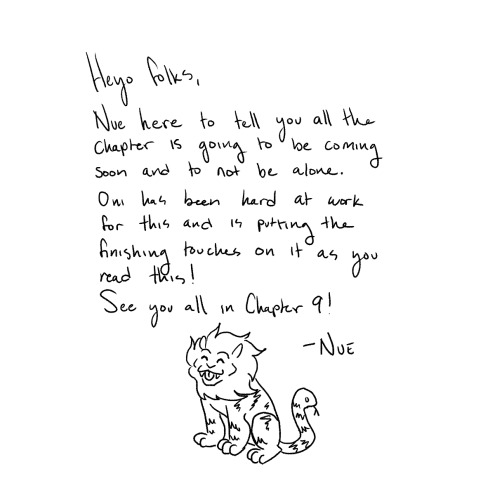 Heyo folks,
Nue here to tell you all the
Chapter is going to be coming
soon and to not be alone.
Oni has been hard at work
for this and is putting the
finishing touches on it as you
read this!
See you all in Chapter 9!
-Nue